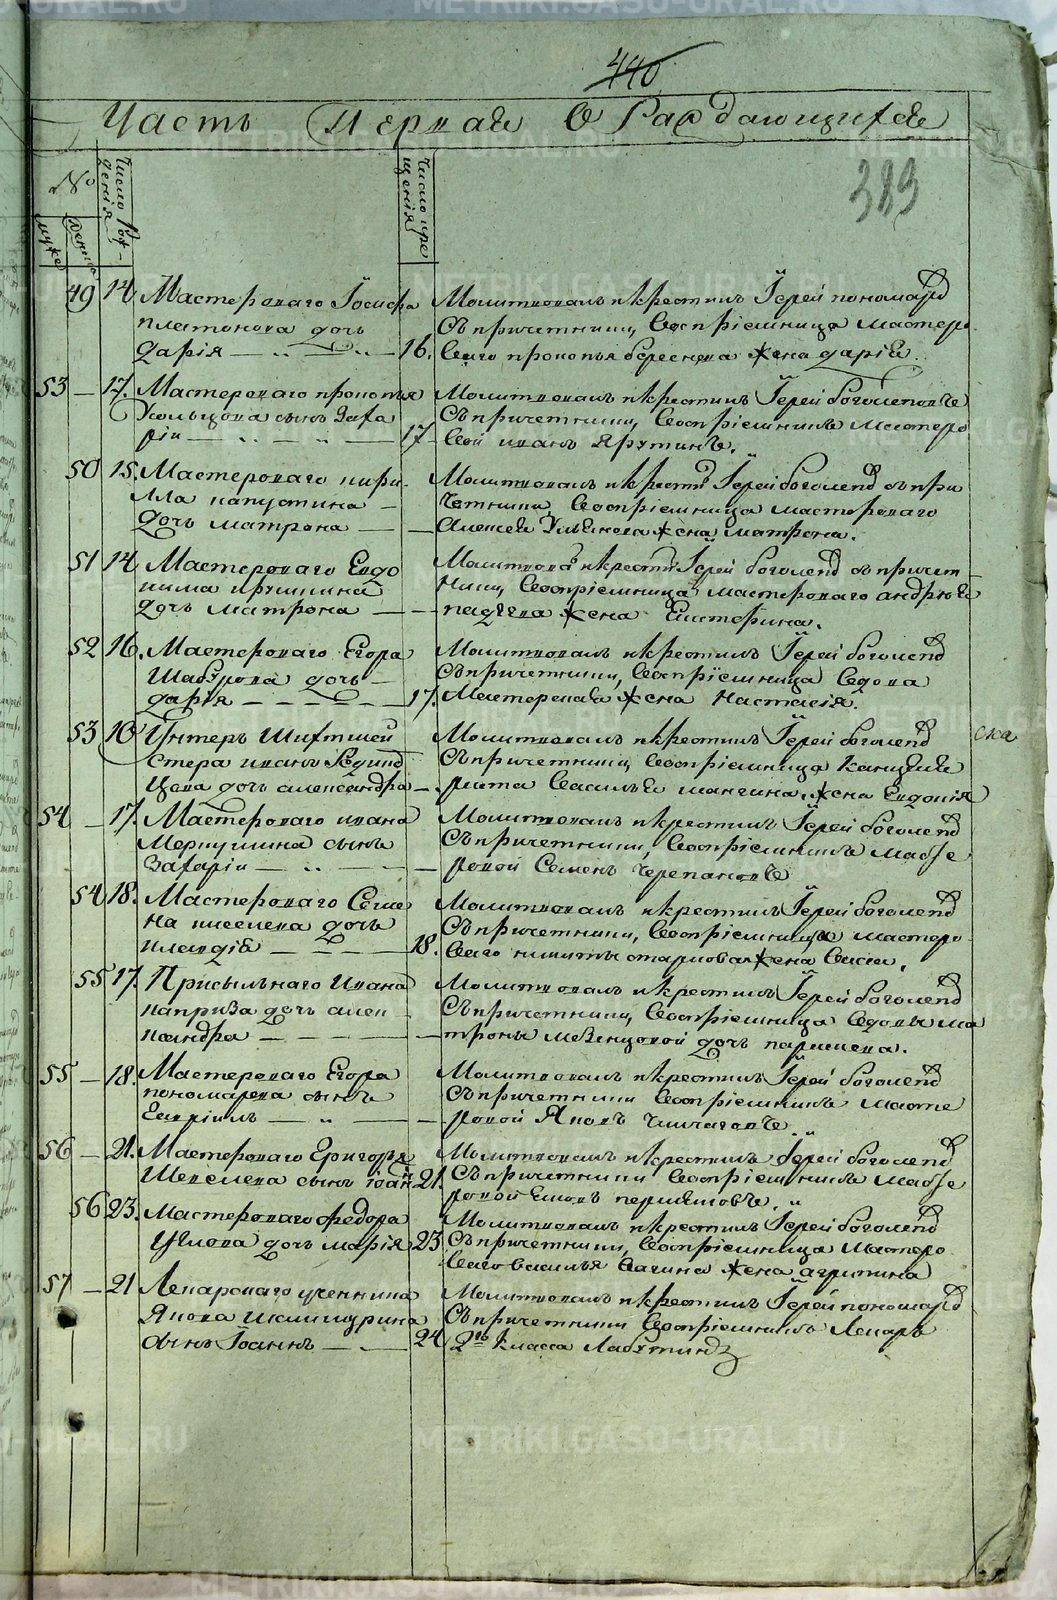 440
Часть Первая О Раждающихся
389
№
муже
женс
Число Рождения
Число крещения
49 14 Мастероваго Іосифа
Платонова дочь
Дарія 16.
Молитвовалъ и крестилъ Іерей Пономарев
съ причетники, восприемница мастеро
ваго Прокопья береснева жена Дарія.
53 — 17. Мастероваго Прокопья
Кольцова сынъ Заха
рій 17
Молитвовалъ и крестилъ Іерей боголеповъ
съ причетники, восприемникъ мастеро
вой иванъ Ярутинъ.
50 15. Мастероваго Кири
лла Капустина
дочь матрона
Молитвовалъ и крестил Іерей боголеп съ при
четники, восприемница мастероваго
Алексея жена матрона.
51 14 Мастероваго Евдо
кима
дочь матрона
Молитвовал и крестил Іерей боголеп съ причет
ники, восприемница мастероваго андрея
жена Екатерина.
52 16. Мастероваго Егора
Шабурова дочь
дарія 17.
Молитвовалъ и крестилъ Іерей боголеп
съ причетники, восприемница вдова
Мастерская жена Настасія.
53 10 Унтеръ Шихтмей
стера иванъ
цова дочь александра
Молитвовалъ и крестилъ Іерей боголеп
съ причетники, восприемница канцеля
риста Василья мангина, жена Евдокія
ска
54 — 17. Мастероваго ивана
Меркушина сынъ
Захарій
Молитвовалъ и крестилъ Іерей боголеп
съ причетники, восприемникъ масте
ровой Семенъ Черепановъ
54 18. Мастероваго Семе
на киселева дочь
клавдія 18.
Молитвовалъ и крестилъ Іерей боголеп
съ причетники, восприемница мастеро
ваго никиты старкова жена
55 17. Присыльнаго Ивана
каприза дочь алек
сандра
Молитвовалъ и крестилъ Іерей боголеп
съ причетники, восприемница вдовы ма
троны мезенцовой дочь
55 — 18. Мастероваго Егора
пономарева сынъ
Гавріилъ
Молитвовалъ и крестилъ Іерей боголеп
съ причетники восприемникъ масте
ровой Яковъ Чипаговъ
56 — 21. Мастероваго Григорья
Шевелева сынъ іоан 21.
Молитвовалъ и крестилъ Іерей боголеп
съ причетники восприемникъ масте
ровой Емовъ пермяковъ.
56 23. Мастероваго федора
Углова дочь марія 23
Молитвовалъ и крестилъ Іерей боголеп
съ причетники, восприемница мастеро
ваго василья вагина жена агрипина
57 — 21 Лекарскаго ученика
Якова
сынъ Іоаннъ 24
Молитвовалъ и крестилъ Іерей пономарев
съ причетники восприемникъ Лекарь
2го класса Лабутин
METRIKI.GASO-URAL.RU